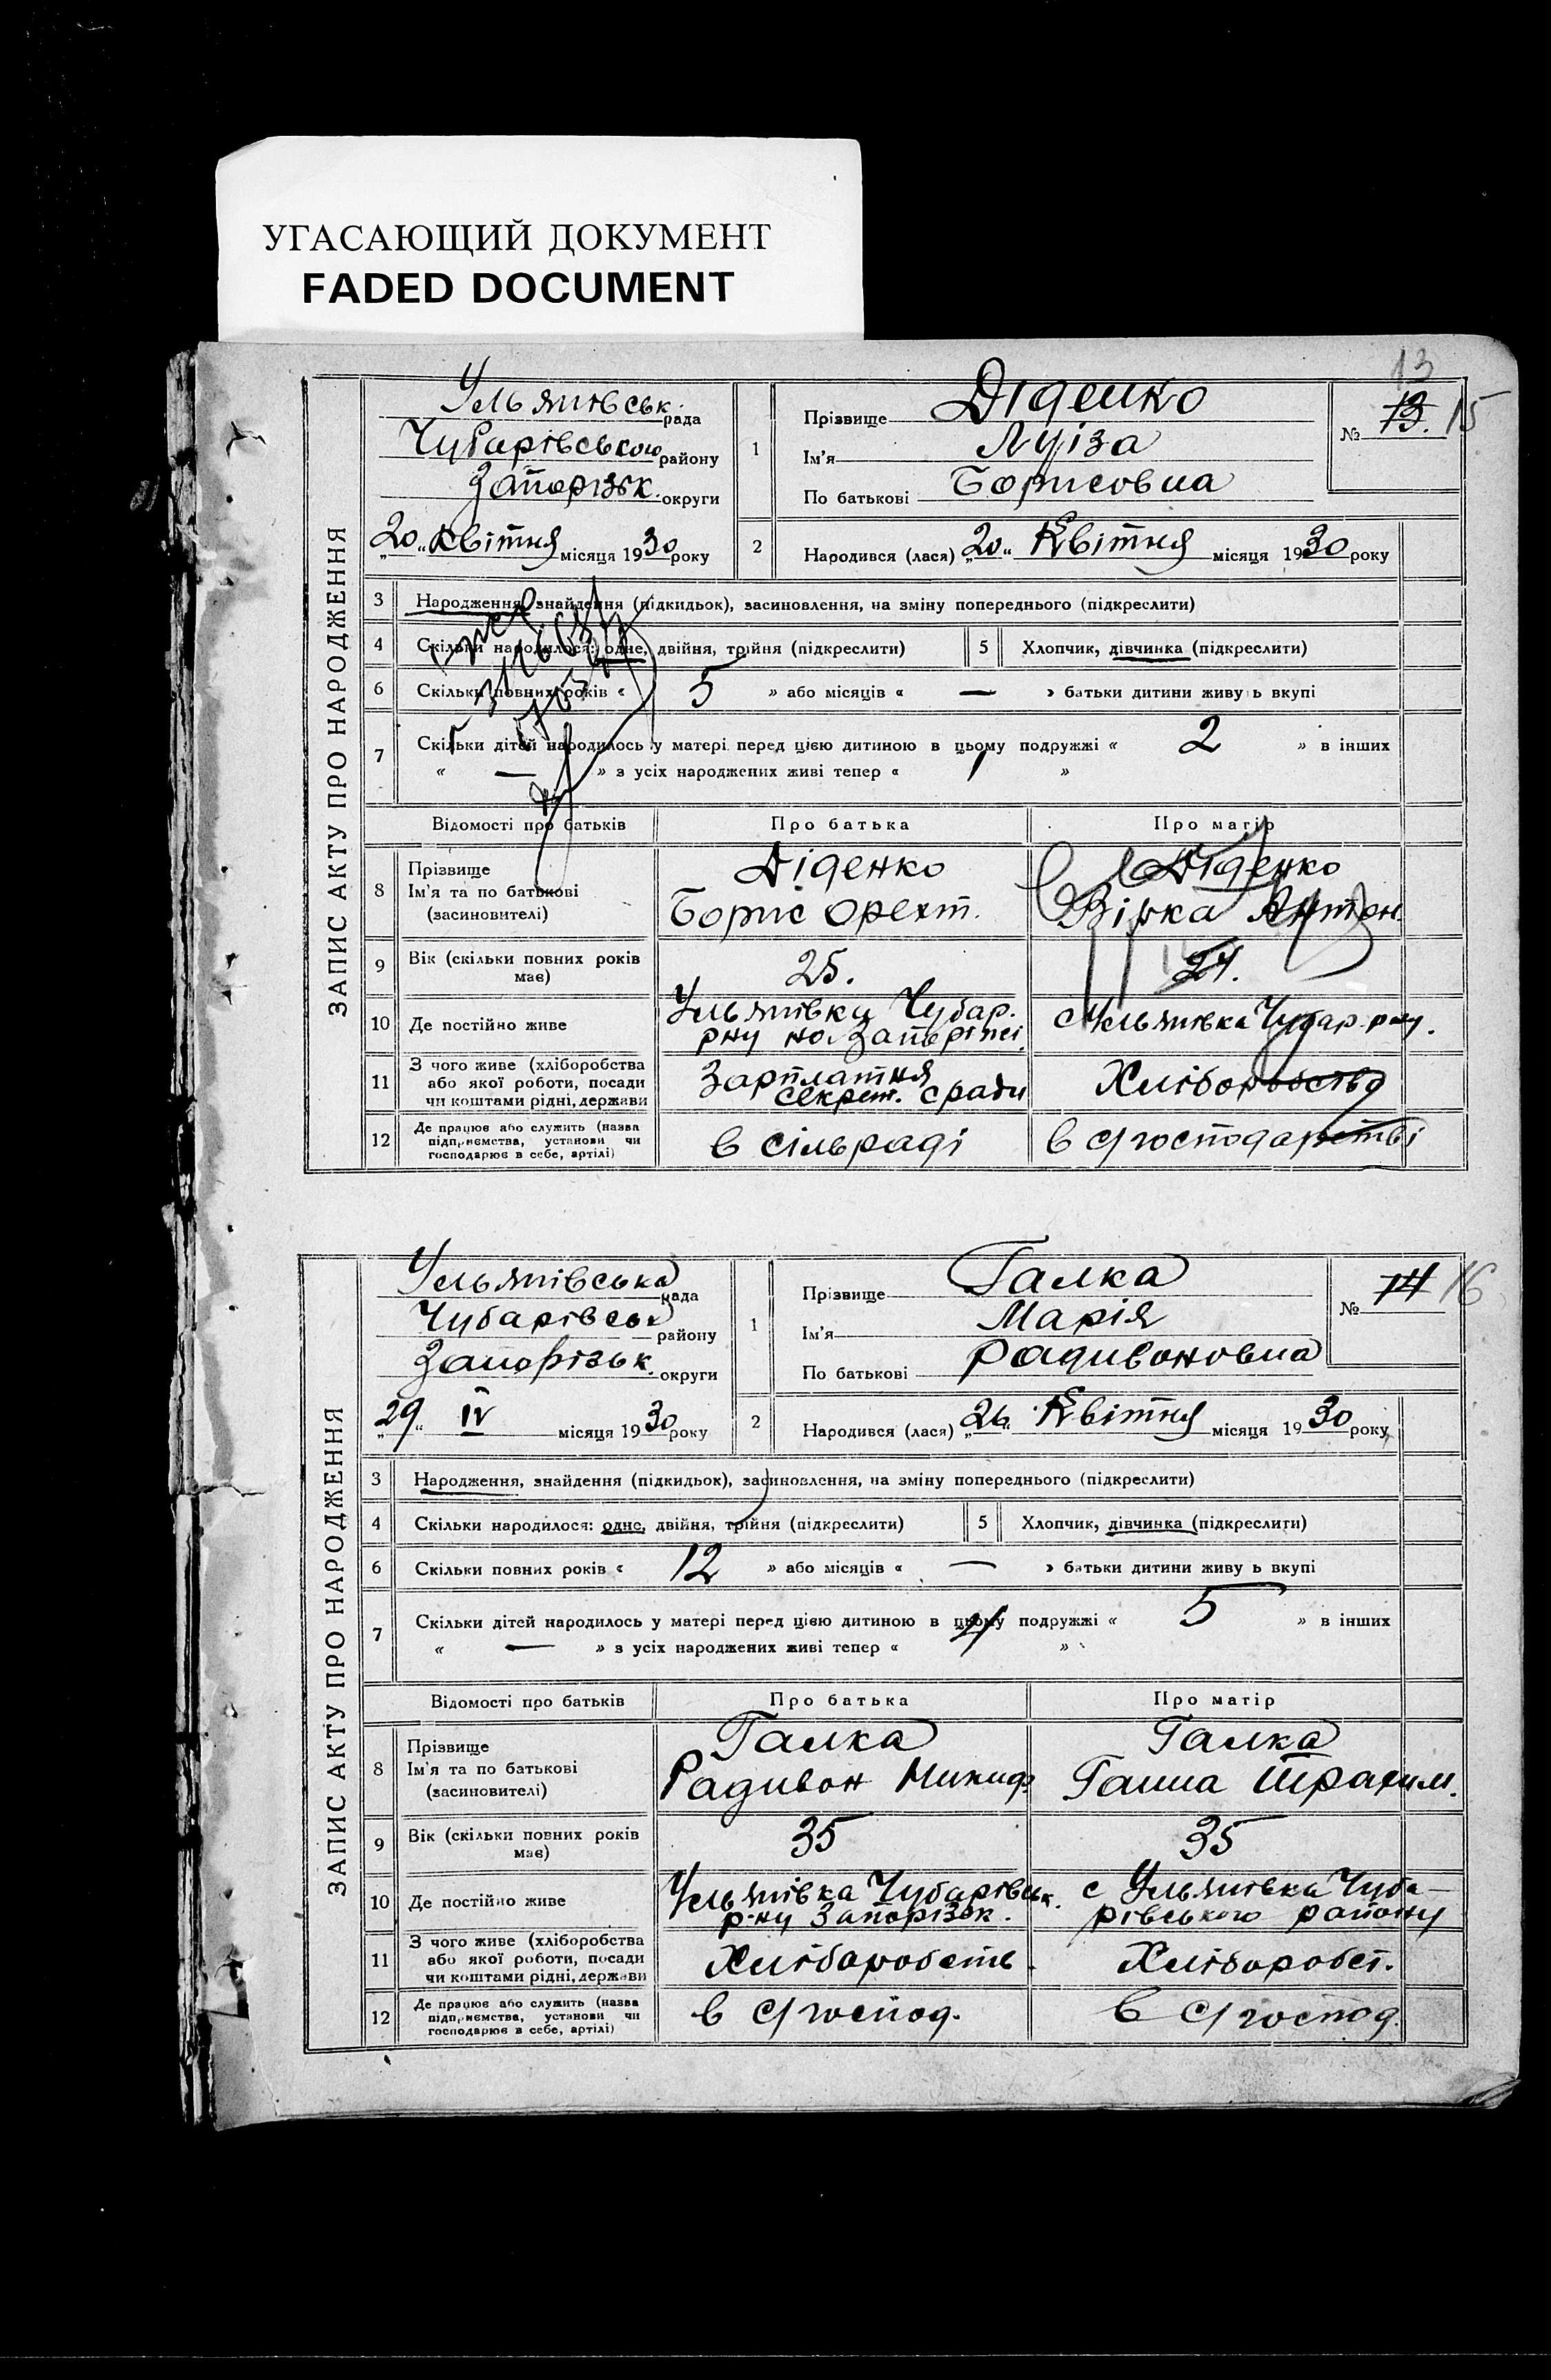 УГАСАЮЩИЙ ДОКУМЕНТ
FADED DOCUMENT
13
ЗАПИС АКТУ ПРО НАРОДЖЕННЯ
Ульянівськ. рада
Чубарівського району
Запорізьк. округи
„20“ Квітня місяця 1930 року
1
Прізвище Діденко
Ім'я Луіза
По батькові Борисовна
№ 13. 15
2
Народився (лася) „20“ Квітня місяця 1930 року
3 Народження, знайдення (підкидьок), засиновлення, на зміну попереднього (підкреслити)
4 Скільки народилося: одне, двійня, трійня (підкреслити)
5 Хлопчик, дівчинка (підкреслити)
6 Скільки повних років « 5 » або місяців « — » батьки дитини живуть вкупі
7 Скільки дітей народилось у матері перед цією дитиною в цьому подружжі « 2 » в інших
« — » з усіх народжених живі тепер « 1 »
Відомості про батьків
Про батька
Про матір
8 Прізвище
Ім'я та по батькові
(засиновителі)
Діденко
Борис Орехт.
Діденко
Вірка Антон.
9 Вік (скільки повних років
має)
25.
24.
10 Де постійно живе
Ульянівка Чубар.
рну на Запоріжі
с Ульянівка Чубар. рну.
11 З чого живе (хліборобства
або якої роботи, посади
чи коштами рідні, держави
Зарплатня
секрет. с ради
Хліборобство
12 Де працює або служить (назва
підприємства, установи чи
господарює в себе, артілі)
в сільраді
в с/господарстві
ЗАПИС АКТУ ПРО НАРОДЖЕННЯ
Ульянівська рада
Чубарівськ району
Запорізьк. округи
„29“ IV місяця 1930 року
1
Прізвище Галка
Ім'я Марія
По батькові Радивоновна
№ 14 16
2
Народився (лася) „26“ Квітня місяця 1930 року
3 Народження, знайдення (підкидьок), засиновлення, на зміну попереднього (підкреслити)
4 Скільки народилося: одне, двійня, трійня (підкреслити)
5 Хлопчик, дівчинка (підкреслити)
6 Скільки повних років « 12 » або місяців « — » батьки дитини живуть вкупі
7 Скільки дітей народилось у матері перед цією дитиною в цьому подружжі « 5 » в інших
« — » з усіх народжених живі тепер « »
Відомості про батьків
Про батька
Про матір
8 Прізвище
Ім'я та по батькові
(засиновителі)
Галка
Радивон Микиф.
Галка
Ганна Трахим.
9 Вік (скільки повних років
має)
35
35
10 Де постійно живе
Ульянівка Чубарівськ.
р-ну Запорізьк.
с Ульянівка Чуба-
рівського району
11 З чого живе (хліборобства
або якої роботи, посади
чи коштами рідні, держави
Хліборобств.
Хліборобст.
12 Де працює або служить (назва
підприємства, установи чи
господарює в себе, артілі)
в с/господ.
в с/господ.